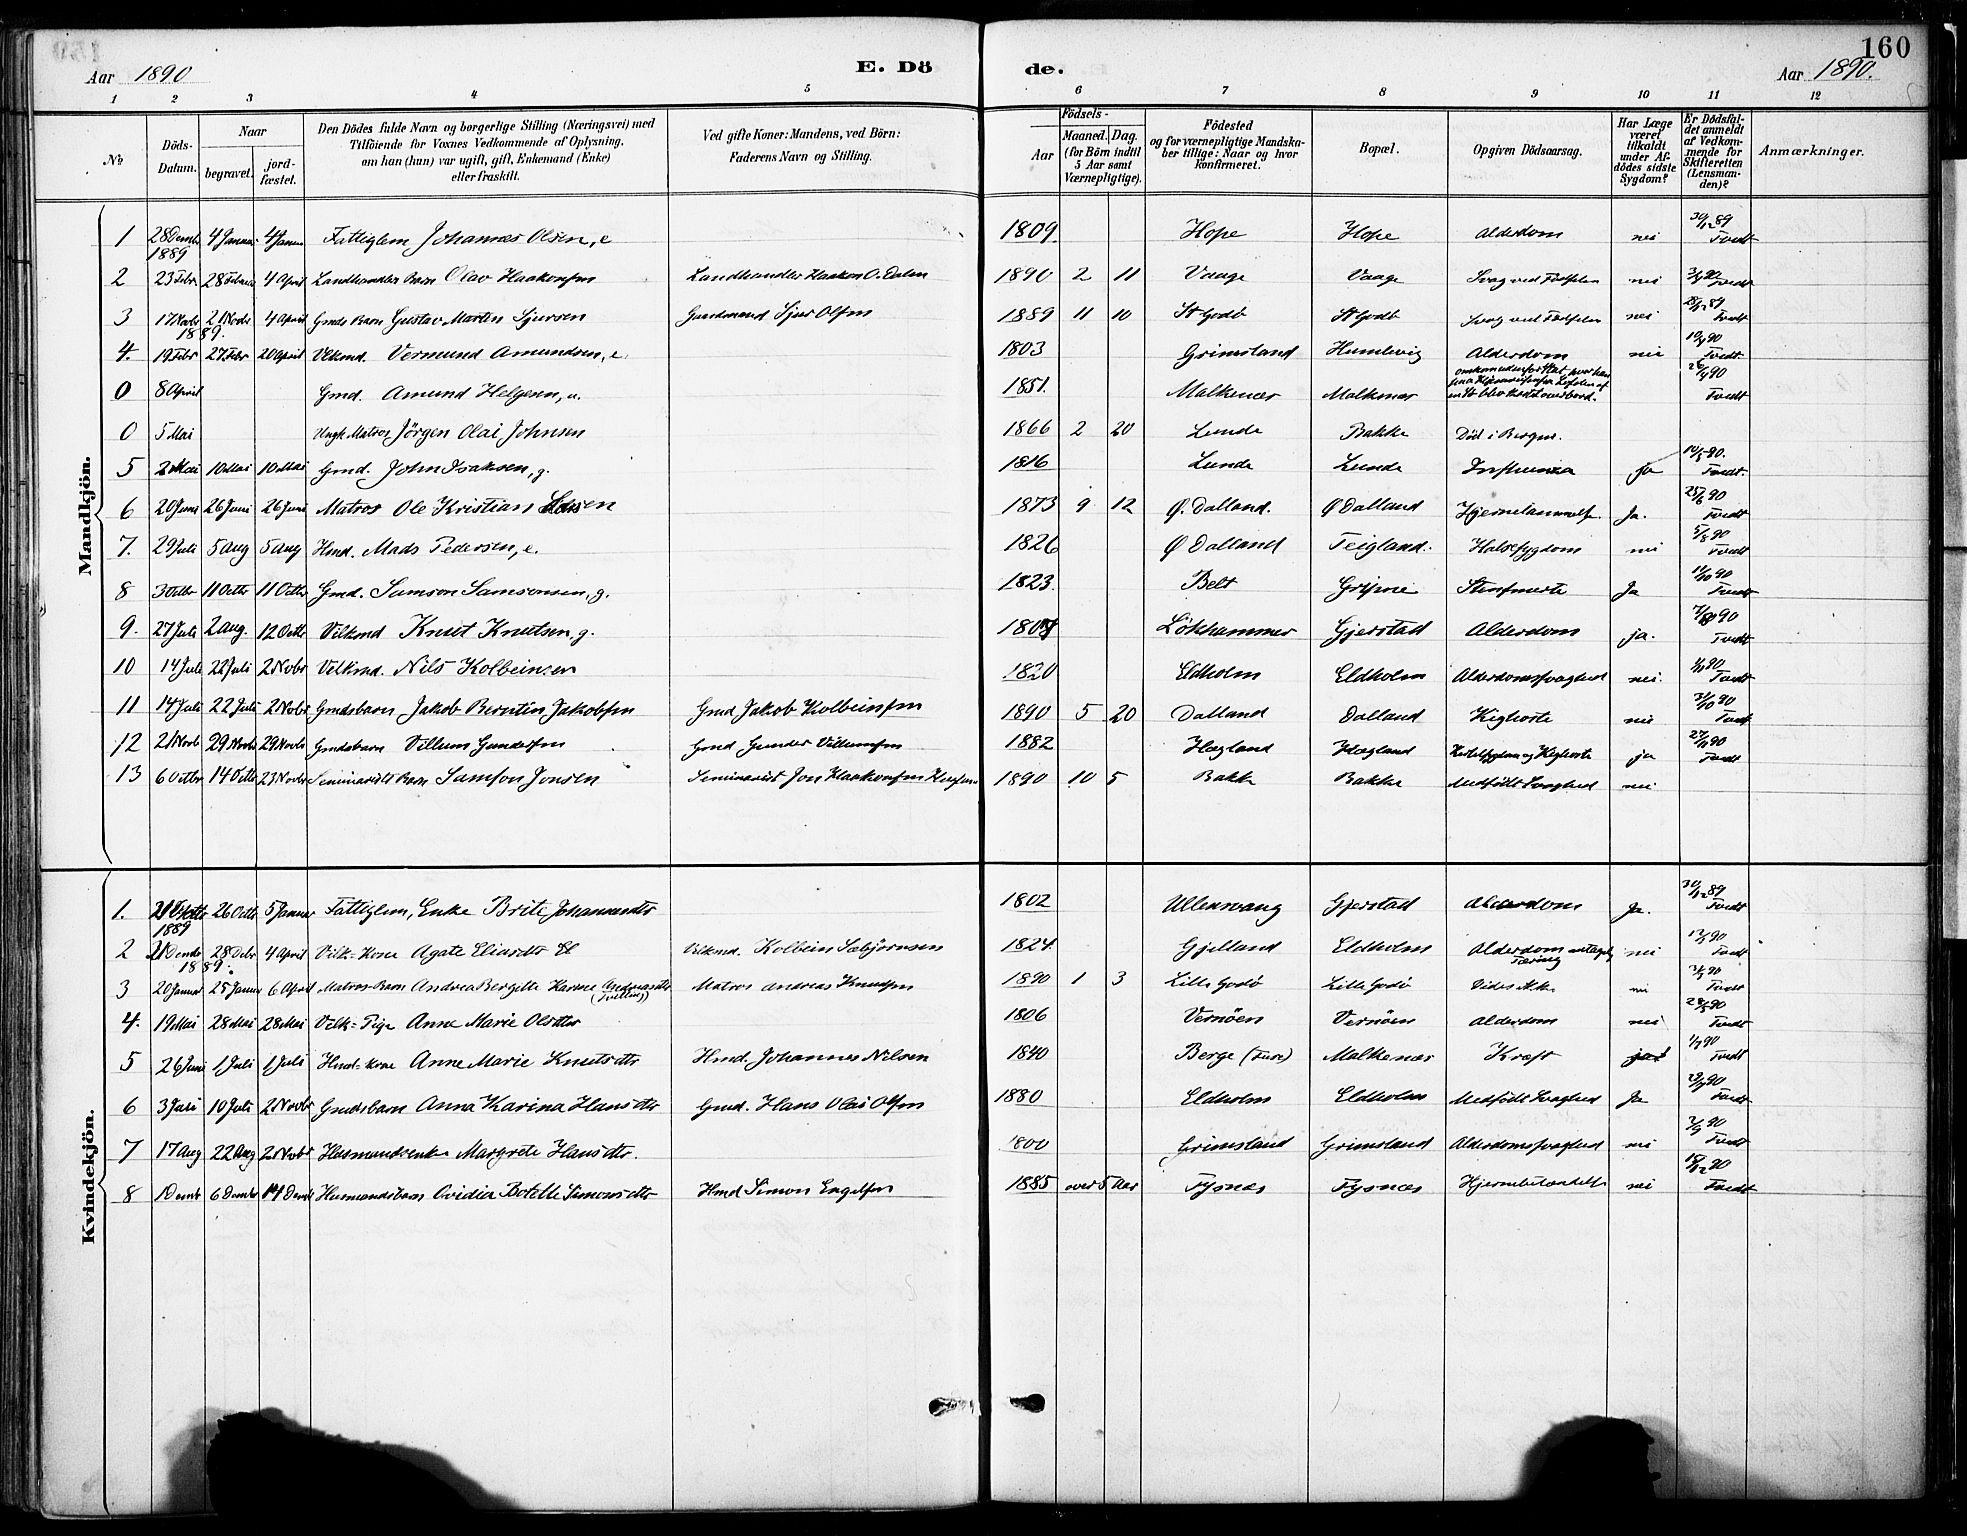 160
Aar 1890 E. Dö de. Aar 1890.
1 2 3 4 5 6 7 8 9 10 11 12
No
Döds-Datum.
Naar
begravet.
jord-fæstet.
Den Dödes fulde Navn og borgerlige Stilling (Næringsvei) med Tilföiende for Voxnes Vedkommende af Oplysning, om han (hun) var ugift, gift, Enkemand (Enke) eller fraskilt.
Ved gifte Koner: Mandens, ved Börn: Faderens Navn og Stilling.
Födsels-
Aar
Maaned. Dag.
(for Börn indtil 5 Aar samt Værnepligtige).
Födested og for værnepligtige Mandska-ber tillige: Naar og hvor konfirmeret.
Bopæl.
Opgiven Dödsaarsag.
Har Læge været tilkaldt under Af-dödes sidste Sygdom?
Er Dödsfal-det anmeldt af Vedkom-mende for Skifteretten (Lensman-den)?
Anmærkninger.
Mandkjön.
1 28 Decmb 1889 4 Januar 4 Januar Fattiglem Johannes Olsen, e 1809. Hope Hope Alderdom nei 30/12 89 Tvedt
2 23 Febr 28 Februar 4 April Landhandler Barn Olav Haakonsen Landhandler Haakon O. Dalen 1890 2 11 Vaage Vaage Svag ved Födselen nei Tvedt
3 17 Novbr 1889. 21 Novbr 4 April Gmds Barn Gustav Martin Sjursen Gaardmand Sjur Olsen 1889 11 10 St Godö St Godö Svag ved Födselen nei Tvedt
4. 19 Febr 27 Febr 20 April Vilkmd. Vermund Amundsen, e. 1803 Grimsland Humlevig Alderdom nei Tvedt
0 8 April Gmd. Amund Helgesen, u. 1851. Malkenæs Malkenæs Tvedt
0 5 Mai Ungk Matros, Jörgen Olai Johnsen 1866 2 20 Lunde Bakke Död i Bergen.
5 2 Mai 10 Mai 10 Mai Gmd. John Isaksen, g. 1816 Lunde Lunde Influenza ja 14/5 90. Tvedt
6 20 Juni 26 Juni 26 Juni Matros Ole Kristian 1873 9 12 Ø. Dalland. Ø Dalland Ja. 25/6 90 Tvedt
7. 29 Juli 5 Aug 5 Aug Hmd. Mads Pedersen, e. 1826 Ø Dalland Teigland. Halssygdom nei 5/8 90 Tvedt
8 3 Octbr 11 Octbr 11 Octbr Gmd. Samson Samsonsen, g. 1823. Belt Gripne Ja 11/10 90 Tvedt
9. 27 Juli 2 Aug. 12 Octbr Vilkmd Knut Knutsen, g. Lökhammer Gjerstad Alderdom ja. Tvedt
10 14 Juli 22 Juli 2 Novbr Vilkmd. Nils Kolbeinsen 1820 Eldholm Eldholm Alderdomssvaghed nei. Tvedt
11 14 Juli 22 Juli 2 Novbr Gmdsbarn Jakob Berntin Jakobsen Gmd Jakob Kolbeinsen 1890 5 20 Dalland Dalland Kighoste nei Tvedt
12 21 Novb 29 Novb 29 Novb Gmdsbarn Villum Gundersen Gmd Gunder Villumsen 1882 Hægland Hægland Kighoste ja Tvedt
13 6 Octbr 14 Octb 23 Novbr Seminarists Barn Samson Jonsen Seminarist Jon Haakonsen 1890 10 5 Bakke Bakke Medfödt Svaghed nei
Kvindekjön.
1. 21 Octbr 1889 26 Octb 5 Januar Fattiglem, Enke Brite Johannesdtr 1802 Ullensvang Gjerstad Alderdom Ja. 30/12 89 Tvedt
2 21 Decmb 1889. 28 Decbr 4 April Vilk=Kone Agate Eliasdtr Vilkmd. Kolbein Sæbjörnsen 1824. Gjelland Eldholm Alderdom Tæring nei Tvedt
3 20 Januar 25 Januar 6 April Matros-Barn Andrea Bergitte Karine Andreasdtr (Tvilling) Matros Andreas Knudsen 1890 1 3 Lille Godö Lille Godö Vides ikke nei Tvedt
4. 19 Mai 28 Mai 28 Mai Vilk=Pige Anne Marie Olsdtr 1806 Vernöen Vernöen Alderdom nei 28/5 90 Tvedt
5 26 Juni 1 Juli 1 Juli Hmd-kone Anne Marie Knutsdtr Hmd. Johannes Nilsen 1840 Berge (Fuse) Malkenæs Kræft 1/7 90 Tvedt
6 3 Juli 10 Juli 2 Novbr Gmdsbarn Anna Karina Hansdtr Gmd. Hans Olai Olsen 1880 Eldholm Eldholm Medfödt Svaghed Ja Tvedt
7 17 Aug 22 Aug 2 Novbr Husmandsenke Margrete Hansdtr. 1800 Grimsland Grimsland Alderdomssvaghed nei Tvedt
8 1 Decmb 6 Decmbr 14 Decmb Husmandsbarn Ovidia Botelle Simonsdtr Hmd Simon Engelsen 1885 over 5 Aar Tysnæs Tysnæs Hjernebetændelse nei 18/12 90 Tvedt